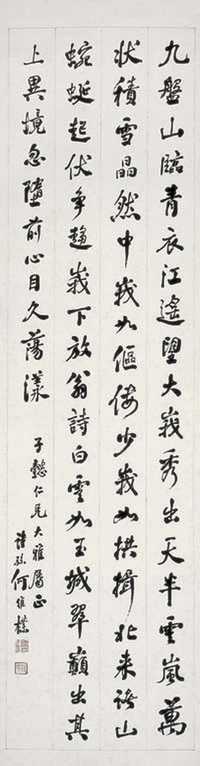 九盤山臨青衣江遙望大峩秀出天半雲嵐萬
狀積雪晶然中峩如傴僂少峩如拱揖北來諸山
蜿蜒起伏爭趨峩下放翁詩白雲如玉城翠巔出其
上異境忽墮前心目久蕩漾
子懿仁兄大雅屬正
詩孫何維樸